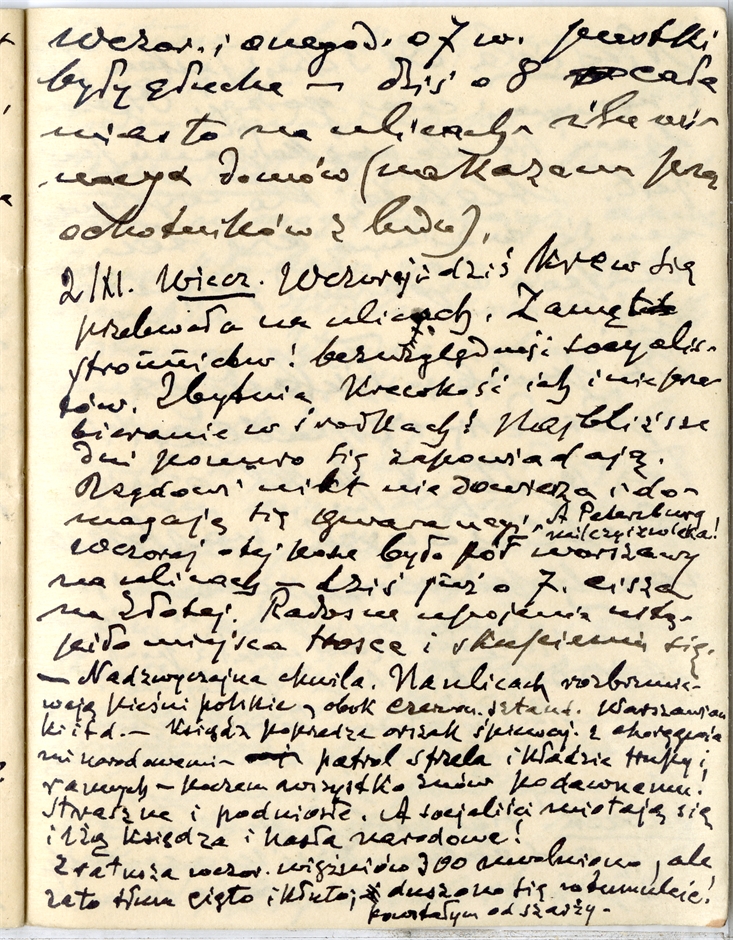 wczor. i onegd. o 7 w. pustki
były głuche — dziś o 8 cała
miasto na ulicach
domów (nakazem przez
ochotników z ludu).
2/XI. Wiecz. Wczoraj i dziś krew się
przelewała na ulicach. Zamęt
stronnictw! bezwzględność socyalis-
tów. Zbytnia krewkość ich i nieprze-
bieranie w środkach! Najbliższe
dni ponuro się zapowiadają.
Rządowi nikt nie dowierza i do-
magają się gwarancyi, A Petersburg
milczy i zwleka!
Wczoraj o tej porze było pół Warszawy
na ulicach — dziś już o 7. cisza
na Złotej. Radosne upojenia ustą-
piło miejsca trosce i skupieniu się.
— Nadzwyczajna chwila. Na ulicach rozbrzmie-
wają pieśni polskie, obok czerwon. sztand. Warszawian-
ki itd. — Ksiądz poprzedza orszak śpiewaj. z chorągwia
mi narodowemi — patrol strzela i kładzie trupy i
rannych — poczem wszystko znów podawnemu!
Straszne i podniosłe. A socjaliści miotają się
i lżą księdza i hasła narodowe!
Z ratusza wczor. więźniów 300 uwolniono, ale
zato tłum cięto i kłuto, i duszono się w tumulcie!
powstałym od szarży.